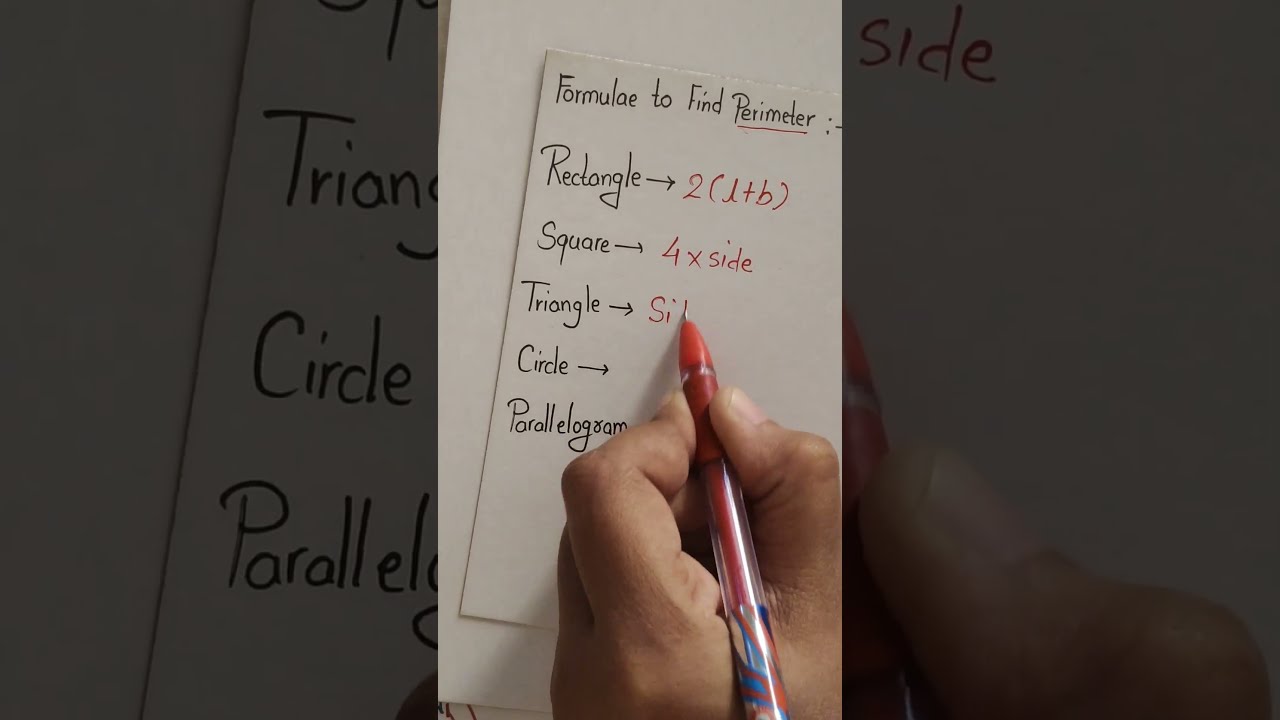 Formulae to Find Perimeter :-
Rectangle → 2(l+b)
Square → 4 x side
Triangle → Si
Circle →
Parallelogram
side
Circle